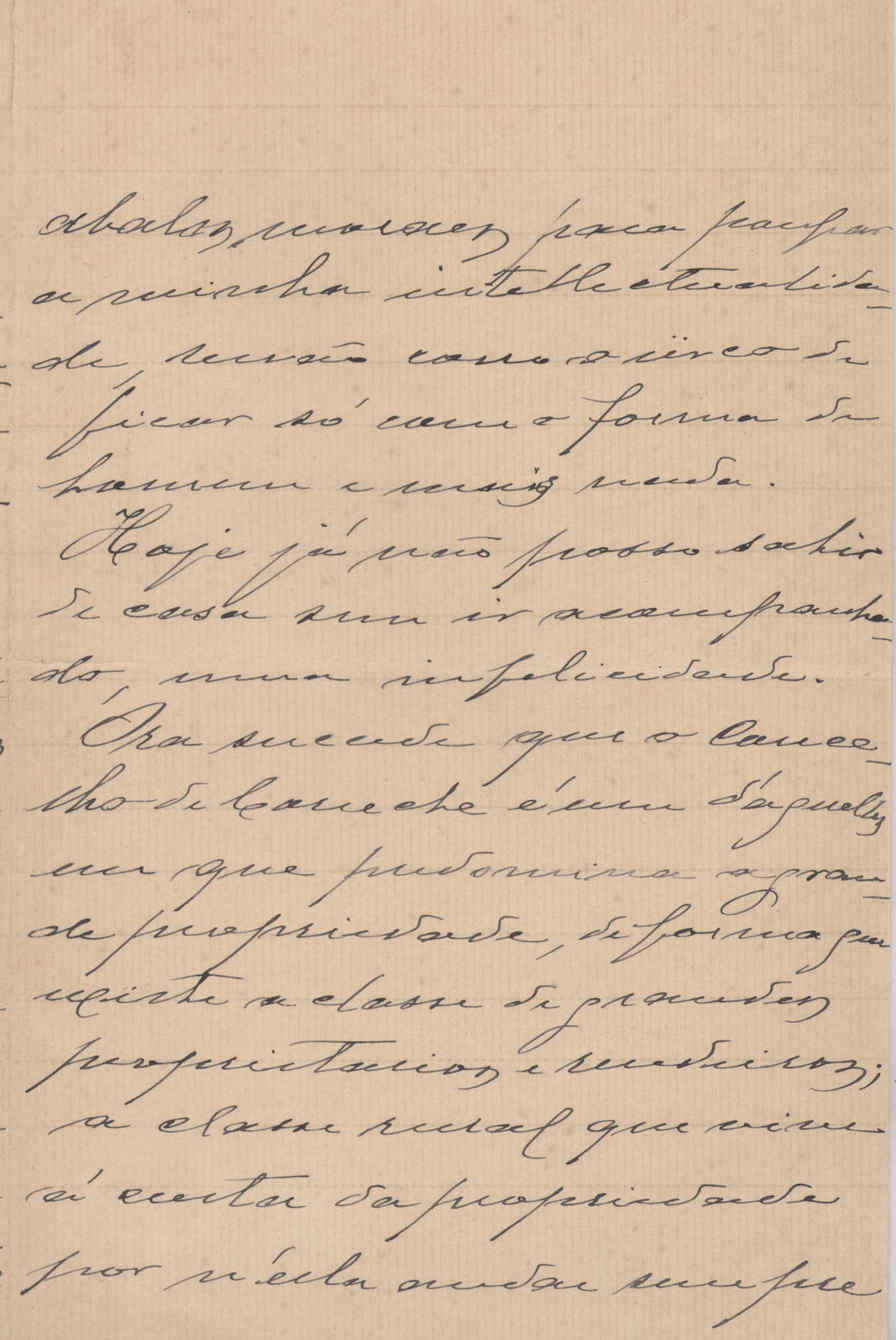 abalos moraes para poupar
a minha intellectualida-
de, senão corro o risco de
ficar só com a forma de
homem e mais nada.
Hoje já não posso sahir
de casa sem ir acompanha-
do, uma infelicidade.
Ora succede que o Conce-
lho de Coruche é um d'aquelles
em que predomina a gran-
de propriedade, de forma que
existe a classe de grandes
proprietarios e rendeiros;
a classe rural que vive
á custa da propriedade
por n'ella andar sempre